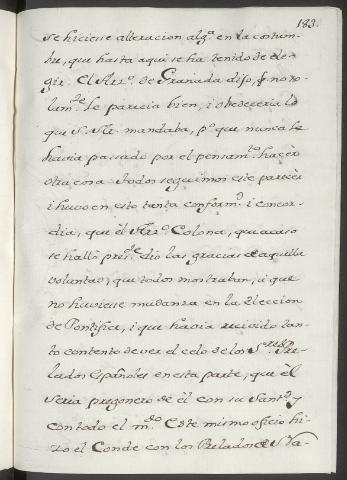 183.
se hiciesse alteracion alg.ª en la costum-
bre, que hasta aqui se ha tenido de ele-
gir. El Arz.º de Granada dijo, q̃ no so-
lam.te le parecia bien, i obedeceria lo
que S. Stt. mandaba, p.º que nunca le
havia passado por el pensam.to hacer
otra cosa. Todos seguimos este parecèr
i huvo en esto tanta conform.d i concor-
dia, que el Arz.º Colona, que acaso
se hallò pres.te dio las gracias de aquella
voluntad, que todos mostraban, à que
no huviesse mudanza en la Eleccion
de Pontifice, i que havia recivido tan-
to contento de ver el celo de los S.res Pre-
lados Españoles en esta parte, que èl
seria pregonero de èl con su Sant.d y
con todo el m.do Este mismo oficio hi-
zo el Conde con los Prelados de Ita-